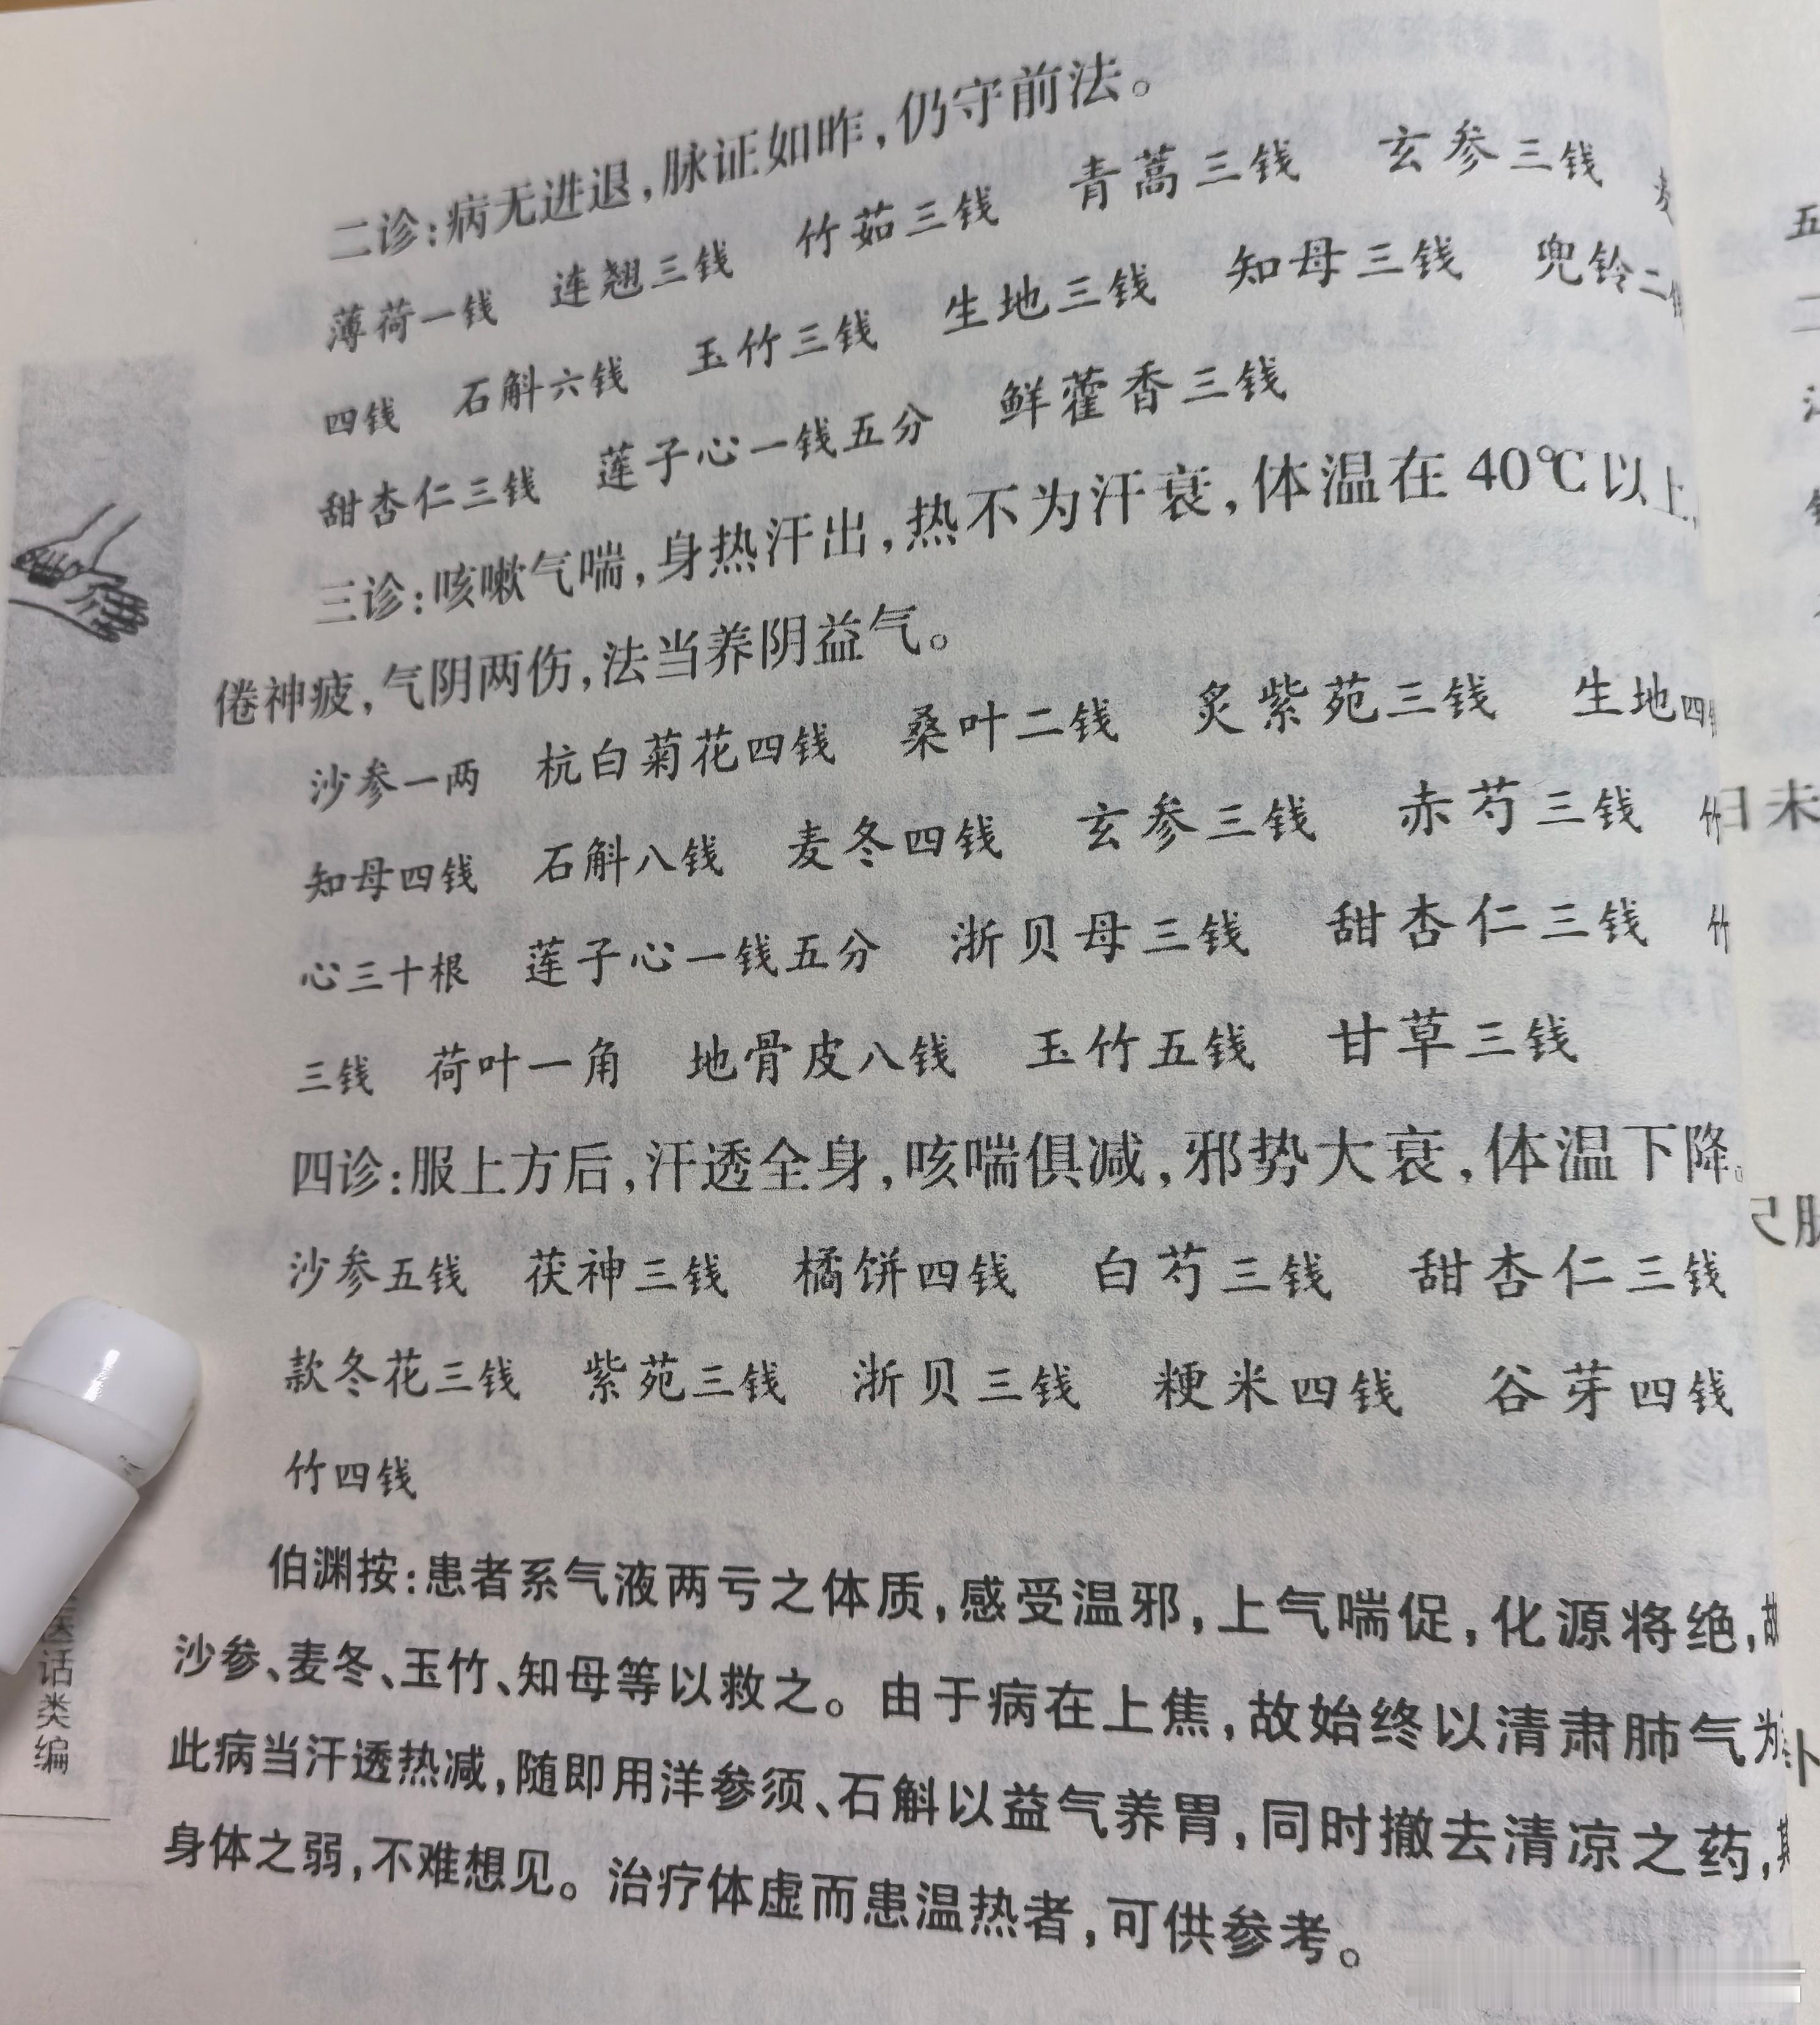 二诊：病无进退，脉证如昨，仍守前法。
薄荷一钱 连翘三钱 竹茹三钱 青蒿三钱 玄参三钱
四钱 石斛六钱 玉竹三钱 生地三钱 知母三钱 兜铃二
甜杏仁三钱 莲子心一钱五分 鲜藿香三钱
三诊：咳嗽气喘，身热汗出，热不为汗衰，体温在40℃以上，
倦神疲，气阴两伤，法当养阴益气。
沙参一两 杭白菊花四钱 桑叶二钱 炙紫苑三钱 生地四
知母四钱 石斛八钱 麦冬四钱 玄参三钱 赤芍三钱
心三十根 莲子心一钱五分 浙贝母三钱 甜杏仁三钱
三钱 荷叶一角 地骨皮八钱 玉竹五钱 甘草三钱
四诊：服上方后，汗透全身，咳喘俱减，邪势大衰，体温下降。
沙参五钱 茯神三钱 橘饼四钱 白芍三钱 甜杏仁三钱
款冬花三钱 紫苑三钱 浙贝三钱 粳米四钱 谷芽四钱
竹四钱
伯渊按：患者系气液两亏之体质，感受温邪，上气喘促，化源将绝，故
沙参、麦冬、玉竹、知母等以救之。由于病在上焦，故始终以清肃肺气为
此病当汗透热减，随即用洋参须、石斛以益气养胃，同时撤去清凉之药，其
身体之弱，不难想见。治疗体虚而患温热者，可供参考。
话类编